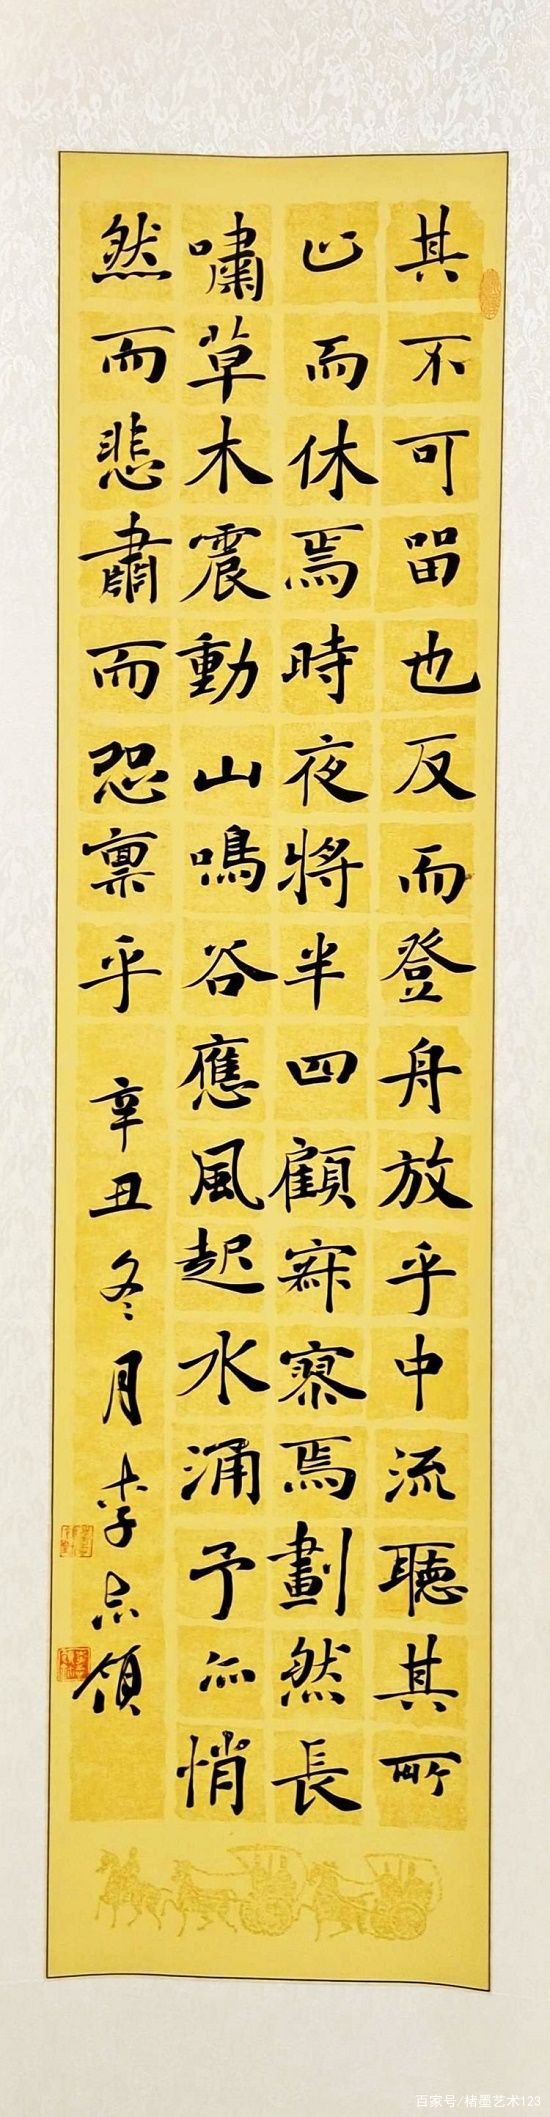 其不可留也反而登舟放乎中流聽其所
止而休焉時夜將半四顧寂寥焉劃然長
嘯草木震動山鳴谷應風起水涌予亦悄
然而悲肅而恐稟乎 辛丑冬月李領
百家号/楮墨艺术123